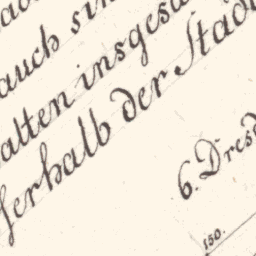 auch sin
alten insgesa
serhalb der Städ
6. Dresd
150.